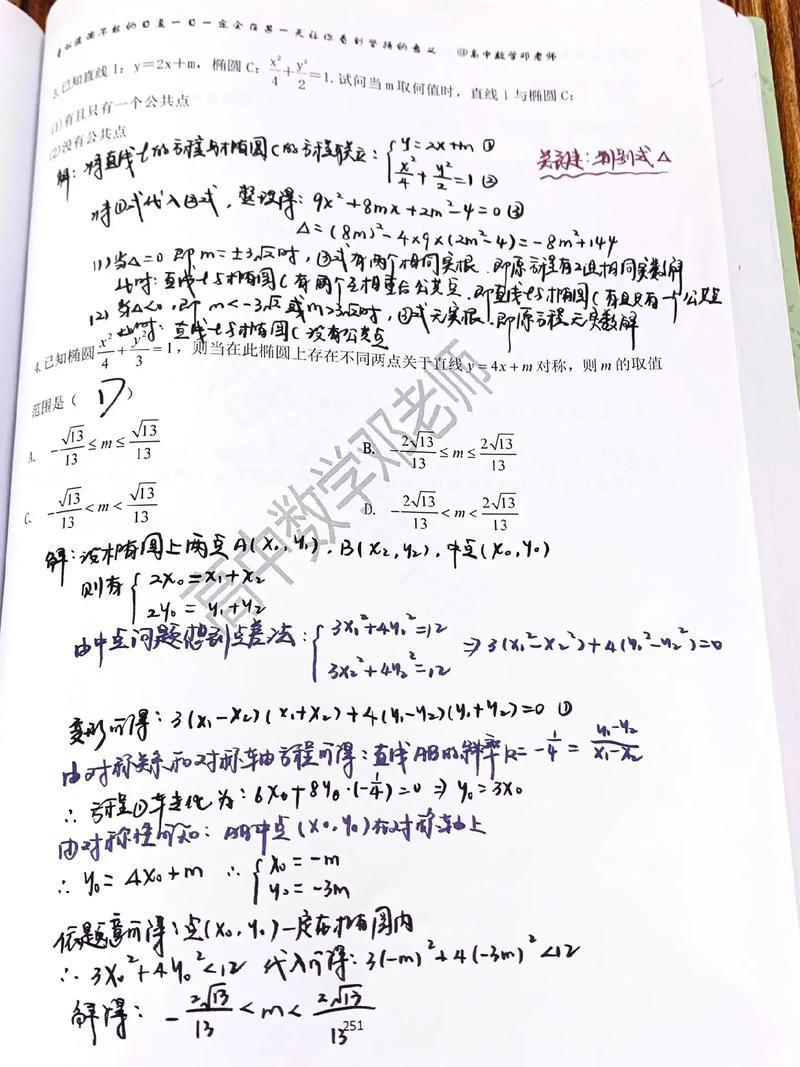 波澜不惊的日复一日一定会在某一天让你看到坚持的意义 @高中数学邓老师
3.已知直线 l: y=2x+m, 椭圆 C: x²/4+y²/2=1. 试问当 m 取何值时, 直线 l 与椭圆 C:
(1)有且只有一个公共点
(2)没有公共点
解: 将直线l的方程与椭圆C的方程联立: { y=2x+m ① x²/4+y²/2=1 ②
关键: 判别式△
将①式代入②式, 整理得: 9x²+8mx+2m²-4=0 ③
△=(8m)²-4×9×(2m²-4)=-8m²+144
(1)当△=0 即 m=±3√2时, ③式有两个相同实根. 即原方程有2组相同实数解
此时: 直线l与椭圆C有两个互相重合公共点. 即直线l与椭圆C有且只有一个公共点
(2)当△<0, 即 m<-3√2或m>3√2时, ③式无实根. 即原方程无实数解
此时: 直线l与椭圆C没有公共点
4.已知椭圆 x²/4+y²/3=1, 则当在此椭圆上存在不同两点关于直线 y=4x+m 对称, 则 m 的取值
范围是( D )
A. -√13/13≤m≤√13/13 B. -2√13/13≤m≤2√13/13
C. -√13/13<m<√13/13 D. -2√13/13<m<2√13/13
高中数学邓老师
解: 设椭圆上两点A(x₀,y₁), B(x₂,y₂), 中点(x₀,y₀)
则有 { 2x₀=x₁+x₂ 2y₀=y₁+y₂
由中点问题想到点差法: { 3x₁²+4y₁²=12 3x₂²+4y₂²=12 ⇒3(x₁²-x₂²)+4(y₁²-y₂²)=0
变形可得: 3(x₁-x₂)(x₁+x₂)+4(y₁-y₂)(y₁+y₂)=0 ①
由对称关系和对称轴方程可得: 直线AB的斜率k=-1/4=(y₁-y₂)/(x₁-x₂)
∴方程①转化为: 6x₀+8y₀·(-1/4)=0 ⇒ y₀=3x₀
由对称性可知: AB中点(x₀,y₀)在对称轴上
∴ y₀=4x₀+m ∴ { x₀=-m y₀=-3m
依题意可得: 点(x₀,y₀)一定在椭圆内
∴ 3x₀²+4y₀²<12 代入可得: 3(-m)²+4(-3m)²<12
解得: -2√13/13<m<2√13/13
251